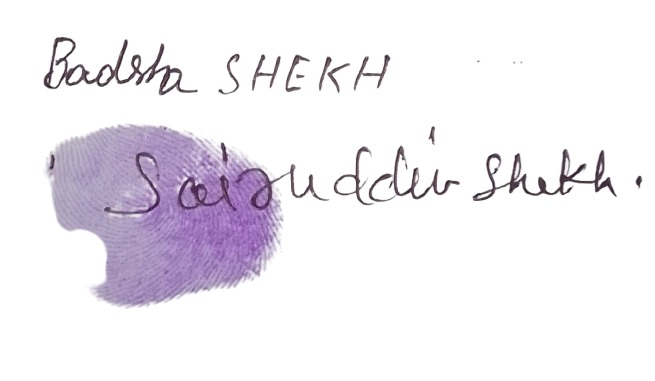 Badsha SHEKH
Saizuddin Shekh.